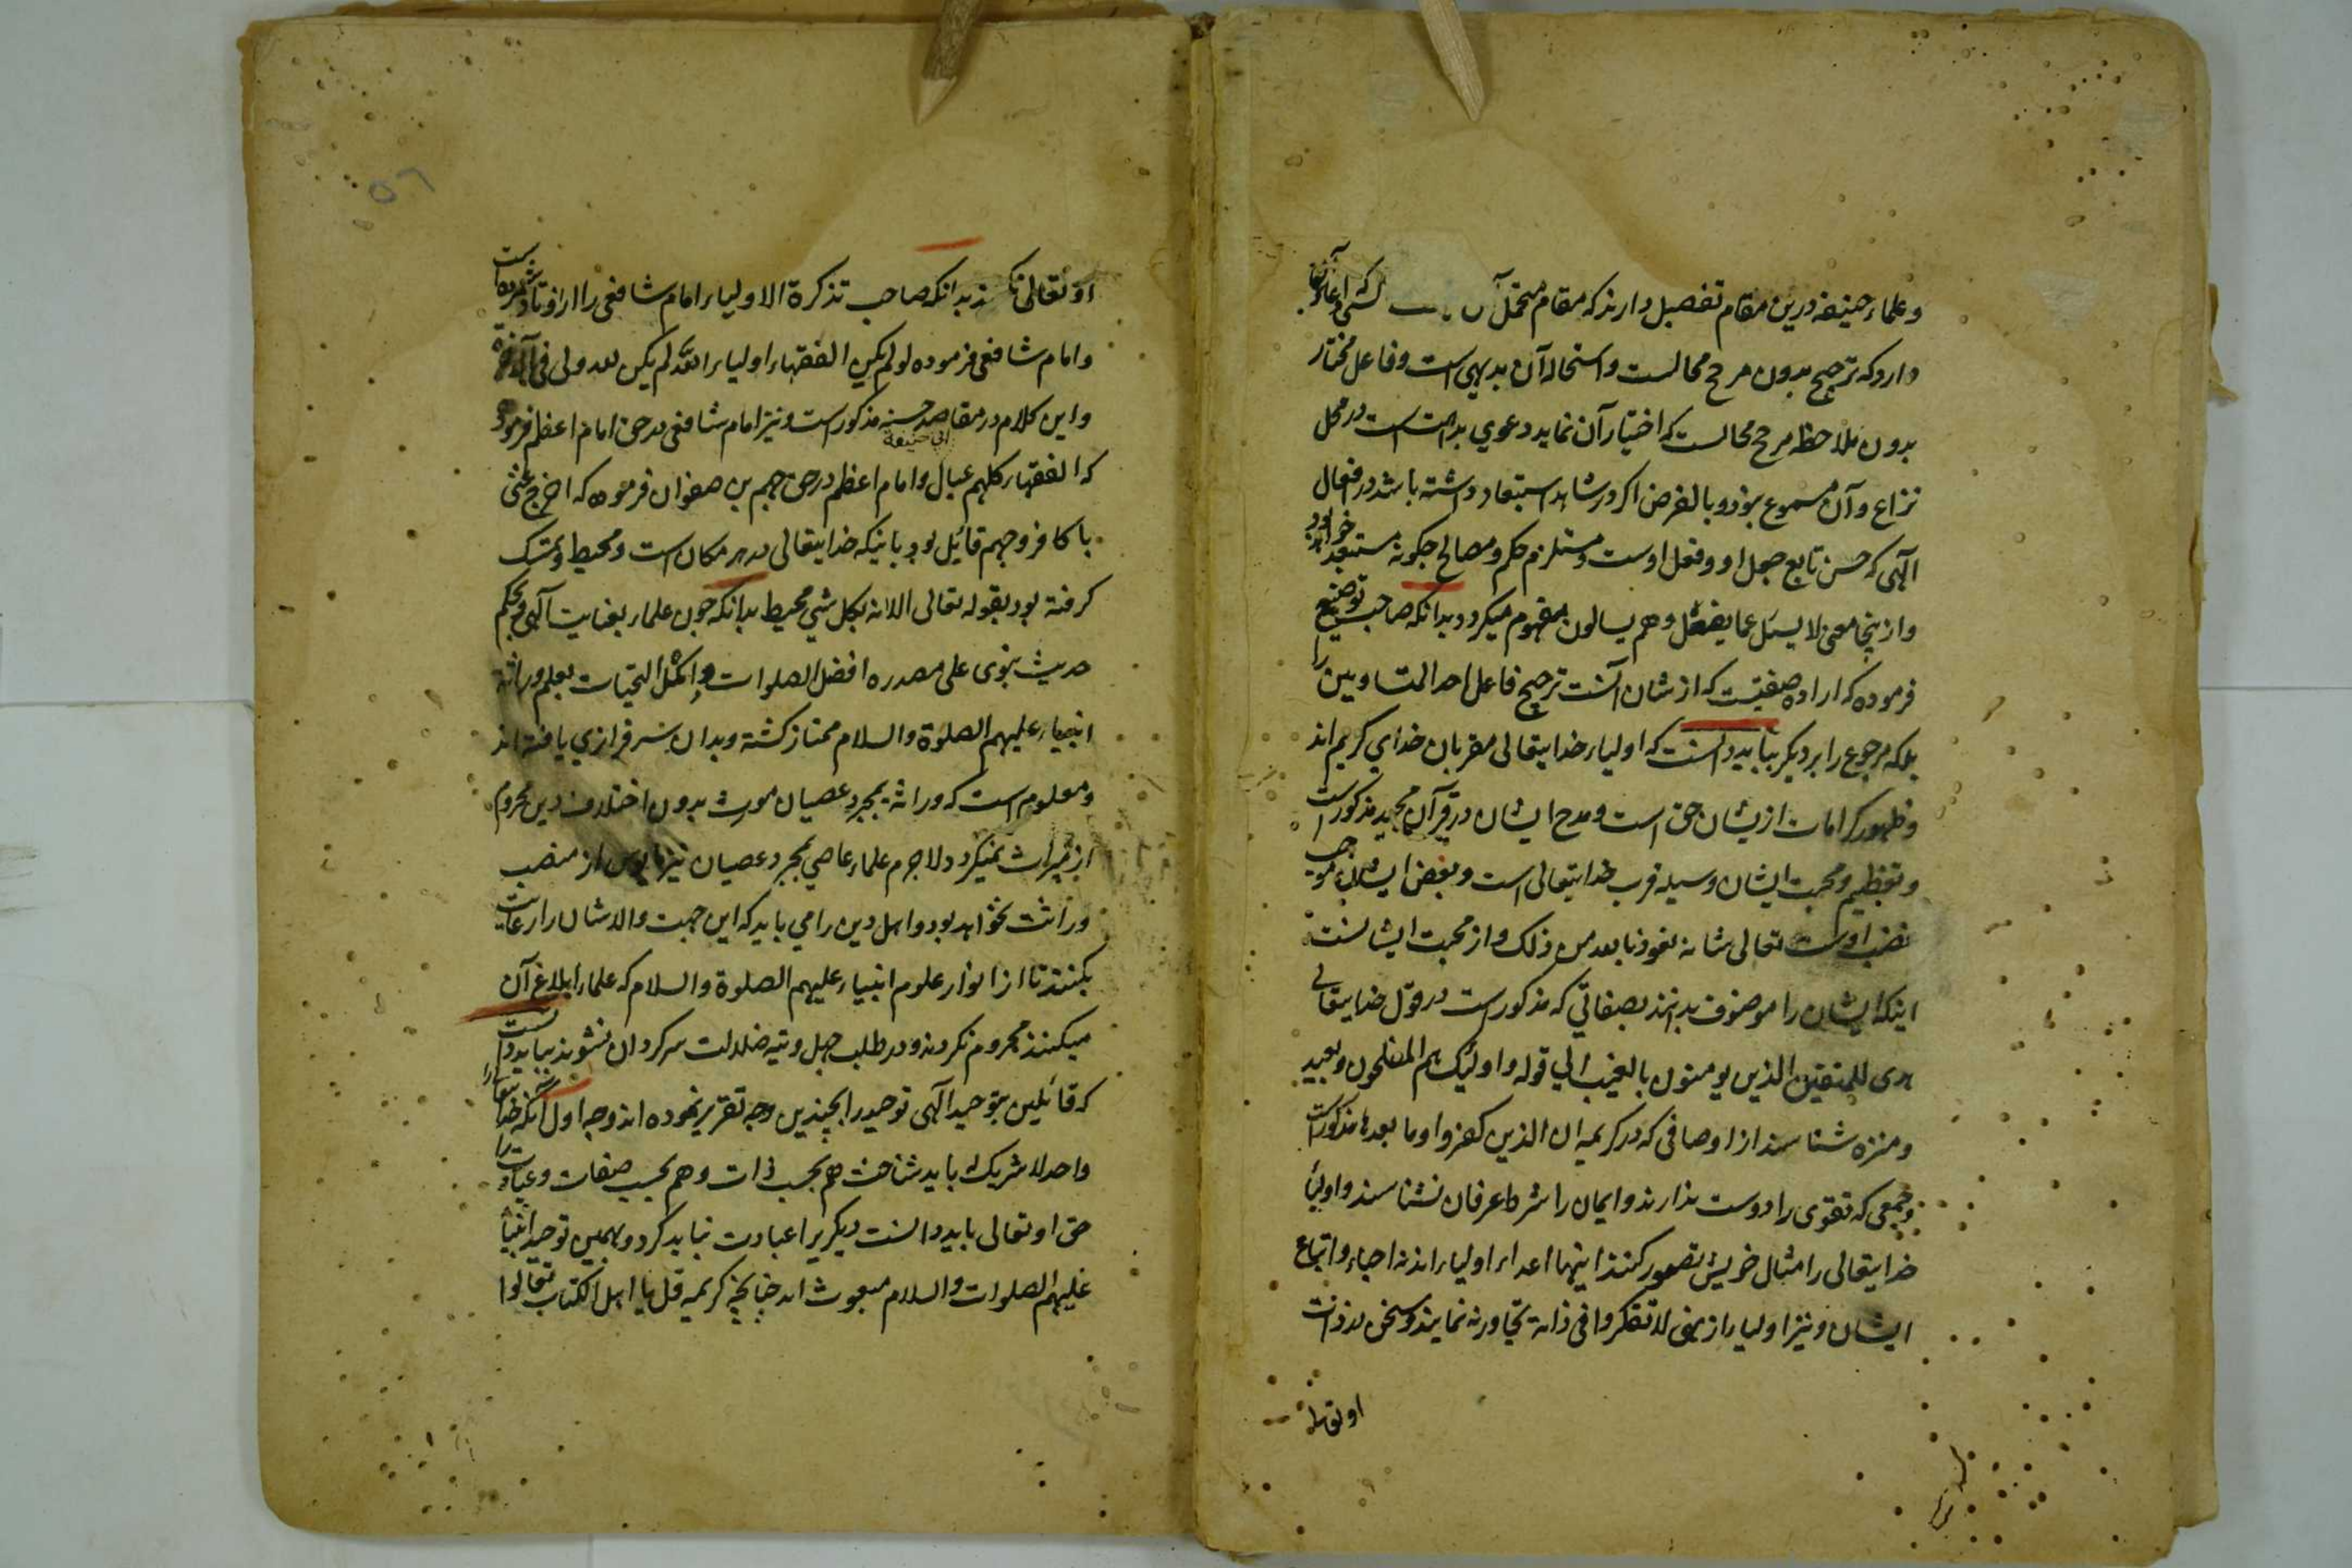 و علماء حنیفه درین مقام تفصیل دارند که مقام متحمل آن کسی که ادعا
دارد که ترجیح بدون مرجح محالست و استحاله آن بدیهی است و فاعل مختار
بدون ملاحظه مرجح محالست که اختیار آن نماید دعوي بداهت است در محل
نزاع و آن مسموع نبود و بالفرض اکر در شاهد استبعاد داشته باشد در افعال
الهی که حسن تابع جعل او و فعل اوست و مستلزم حکم و مصالح چکونه مستبعد خواهد بود
و ازینجا معنی لا یسئل عما یفعل و هم یسالون مفهوم میکردد بدانکه صاحب توضیح
فرموده که اراده صفتیست که از شان آنست ترجیح فاعل احد المتساویین را
بلکه مرجوع را بر دیکر بباید دانست که اولیاء خدایتعالی مقربان خدای کریم اند
و ظهور کرامات ازیشان حق است و مدح ایشان در قرآن مجید مذکور است
و تعظیم و محبت ایشان وسیله قرب خدایتعالی است و بغض ایشان موجب
غضب اوست تعالی شانه نعوذ بالله من ذلک و از محبت ایشانست
اینکه ایشان را موصوف بدانند بصفاتی که مذکور است در قول خدایتعالی
هدی للمتقین الذین یومنون بالغیب الی قوله و اولئک هم المفلحون و بعید
و منزه شناسند از اوصافی که در کریمه ان الذین کفروا و ما بعدها مذکور است
و جمعی که تقوی را دوست ندارند و ایمان را شرط عرفان نشناسند و اولیاء
خدایتعالی را مثال خویش تصور کنند اینها اعداء اولیاء اند نه احباء و اتباع
ایشان و نیز اولیاء از نهی لا تفکروا فی ذاته تجاوز نه نمایند و سخن در ذات
او تعالی
او تعالی نکنند بدانکه صاحب تذکرة الاولیاء امام شافعی را از اوتاد شمرده است
و امام شافعی فرموده لو لم یکن الفقهاء اولیاء الله لم یکن لله ولی فی الآخرة
و این کلام در مقاصد حسنه مذکور است و نیز امام شافعی در حق امام اعظم فرموده
که الفقهاء کلهم عیال ابی حنیفة و امام اعظم در حق جهم بن صفوان فرموده که اخرج عنی
یا کافر و جهم قائل بود باینکه خدایتعالی در هر مکان است و محیط و تمسک
کرفته بود بقوله تعالی الا انه بکل شي محیط بدانکه چون علماء بعنایت الهی و بحکم
حدیث نبوی علی مصدره افضل الصلوات و اکمل التحیات بعلم وراثة
انبیاء علیهم الصلوة والسلام ممتاز کشته و بدان سرفرازي یافته اند
و معلوم است که وراثه بمجرد عصیان مورث بدون اختلاف دین محروم
از میراث نمیکردد لاجرم علماء عاصي بمجرد عصیان نیز مایوس از منصب
وراثت نخواهد بود و اهل دین را می باید که این جهت والا شان را رعایت
بکنند تا از انوار علوم انبیاء علیهم الصلوة والسلام که علماء ابلاغ آن
میکنند محروم نکردند و در طلب جهل و تیه ضلالت سرکردان نشوند بباید دانست
که قائلین بتوحید الهی توحید را بچندین وجه تقریر نموده اند وجه اول آنکه خدایتعالی را
واحد لا شریک باید شناخت هم بحسب ذات و هم بحسب صفات و عبادت را
حق او تعالی باید دانست دیکری را عبادت نباید کرد و بهمین توحید انبیاء
علیهم الصلوات والسلام مبعوث اند چنانچه کریمه قل یا اهل الکتاب تعالوا